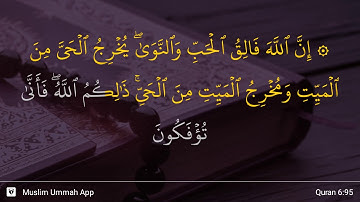 ۞ إِنَّ ٱللَّهَ فَالِقُ ٱلْحَبِّ وَٱلنَّوَىٰ ۖ يُخْرِجُ ٱلْحَىَّ مِنَ
ٱلْمَيِّتِ وَمُخْرِجُ ٱلْمَيِّتِ مِنَ ٱلْحَىِّ ۚ ذَٰلِكُمُ ٱللَّهُ ۖ فَأَنَّىٰ
تُؤْفَكُونَ
Muslim Ummah App
Quran 6:95